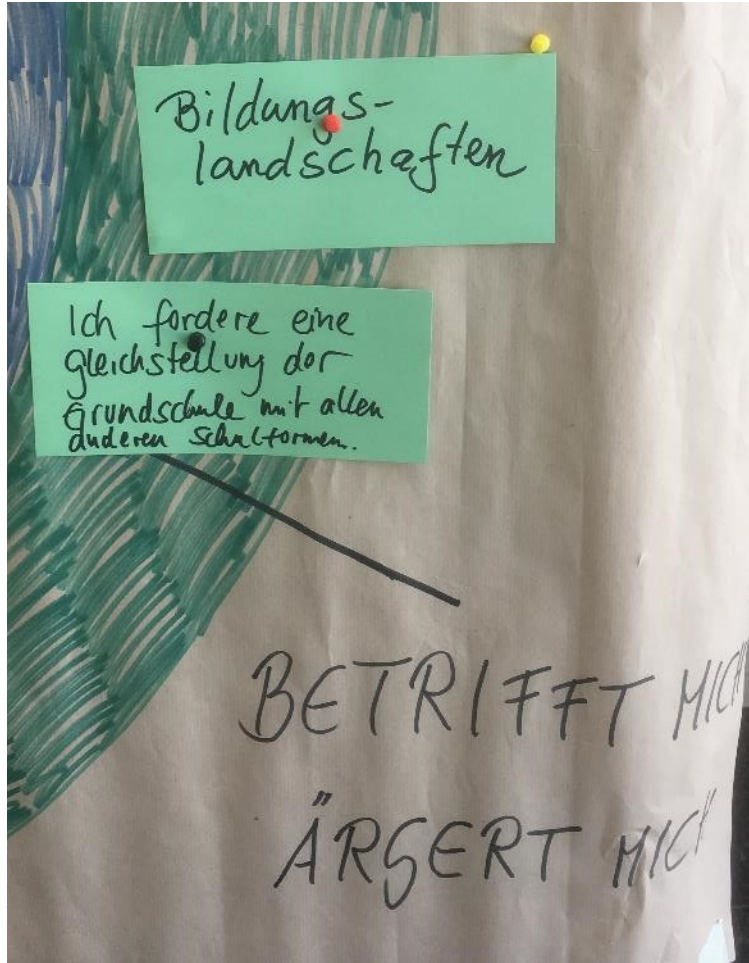 Bildungs-
landschaften
Ich fordere eine
gleichstellung der
Grundschule mit allen
anderen Schulformen.
BETRIFFT MICH
ÄRGERT MICH